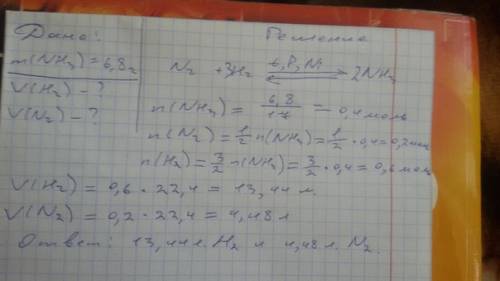 Дано:
Решение
m(NH₃)=6,8г
V(H₂) – ?
V(N₂) – ?
N₂ + 3H₂ t,P,Ni ⇄ 2NH₃
n(NH₃) = 6,8/17 = 0,4 моль
n(N₂) = 1/2 n(NH₃) = 1/2 · 0,4 = 0,2 моль
n(H₂) = 3/2 n(NH₃) = 3/2 · 0,4 = 0,6 моль
V(H₂) = 0,6 · 22,4 = 13,44 л.
V(N₂) = 0,2 · 22,4 = 4,48 л
Ответ: 13,44 л. H₂ и 4,48 л. N₂.